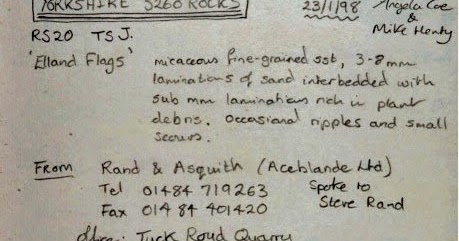 YORKSHIRE S260 ROCKS 23/1/98 Angela Coe
& Mike Henty
RS20 TSJ.
'Elland Flags' micaceous fine-grained sst, 3-8mm
laminations of sand interbedded with
sub mm laminations rich in plant
debris. Occasional ripples and small
scours.
FROM Rand & Asquith (Aceblande Ltd)
Tel 01484 719263 Spoke to
Fax 01484 401420 Steve Rand
Tuck Royd Quarry